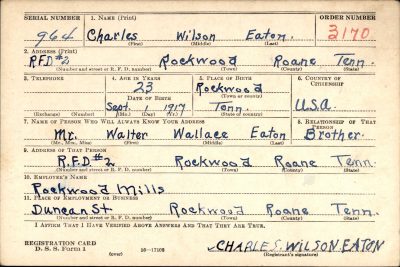 SERIAL NUMBER 1. NAME (Print) ORDER NUMBER
964 Charles Wilson Eaton. 3170
(First) (Middle) (Last)
2. ADDRESS (Print)
R.F.D #2 Rockwood Roane Tenn.
(Number and street or R. F. D. number) (Town) (County) (State)
3. TELEPHONE 4. AGE IN YEARS 5. PLACE OF BIRTH 6. COUNTRY OF CITIZENSHIP
23 Rockwood
DATE OF BIRTH (Town or county)
Sept. 1, 1917 Tenn. U.S.A.
(Exchange) (Number) (Mo.) (Day) (Yr.) (State or country)
7. NAME OF PERSON WHO WILL ALWAYS KNOW YOUR ADDRESS 8. RELATIONSHIP OF THAT PERSON
Mr. Walter Wallace Eaton Brother.
(Mr., Mrs., Miss) (First) (Middle) (Last)
9. ADDRESS OF THAT PERSON
R.F.D #2 Rockwood Roane Tenn.
(Number and street or R. F. D. number) (Town) (County) (State)
10. EMPLOYER'S NAME
Rockwood Mills
11. PLACE OF EMPLOYMENT OR BUSINESS
Duncan St Rockwood Roane Tenn.
(Number and street or R. F. D. number) (Town) (County) (State)
I AFFIRM THAT I HAVE VERIFIED ABOVE ANSWERS AND THAT THEY ARE TRUE.
REGISTRATION CARD
D. S. S. Form 1 (over) 16—17105 CHARLES. WILSON EATON
(Registrant's signature)